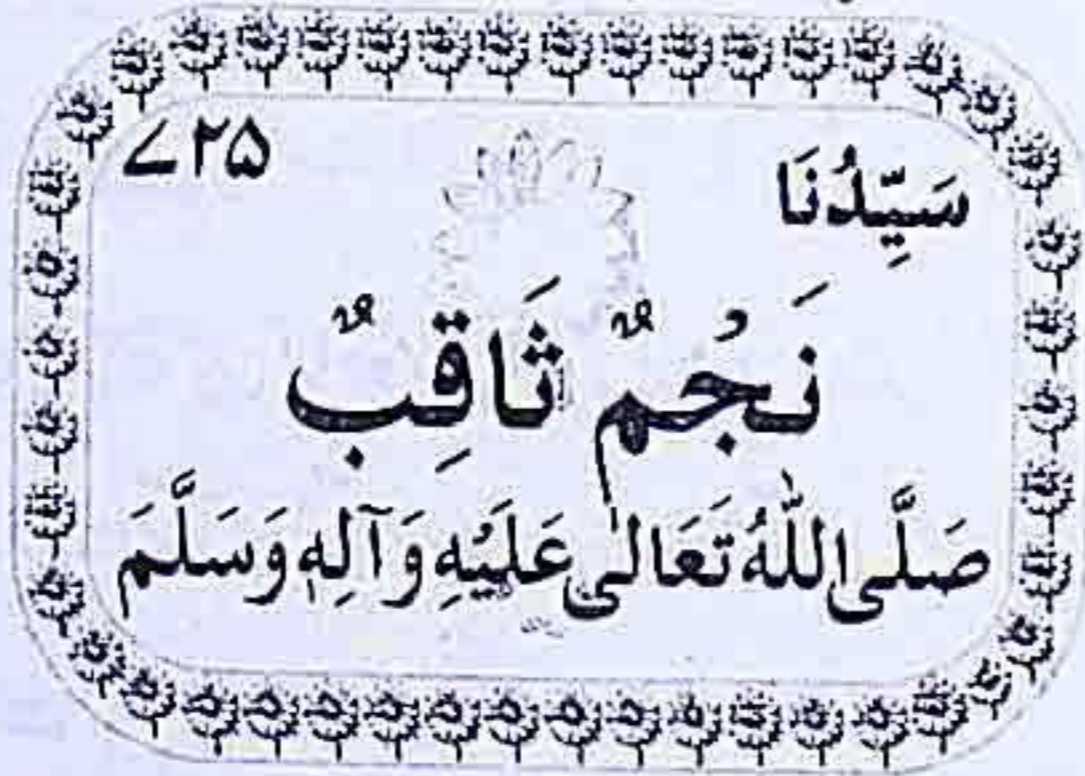 سَيِّدُنَا ۷۲۵
نَجُمٌ ثَاقِبٌ
صَلَّى اللّٰهُ تَعَالٰى عَلَيْهِ وَآلِهٖ وَسَلَّمَ